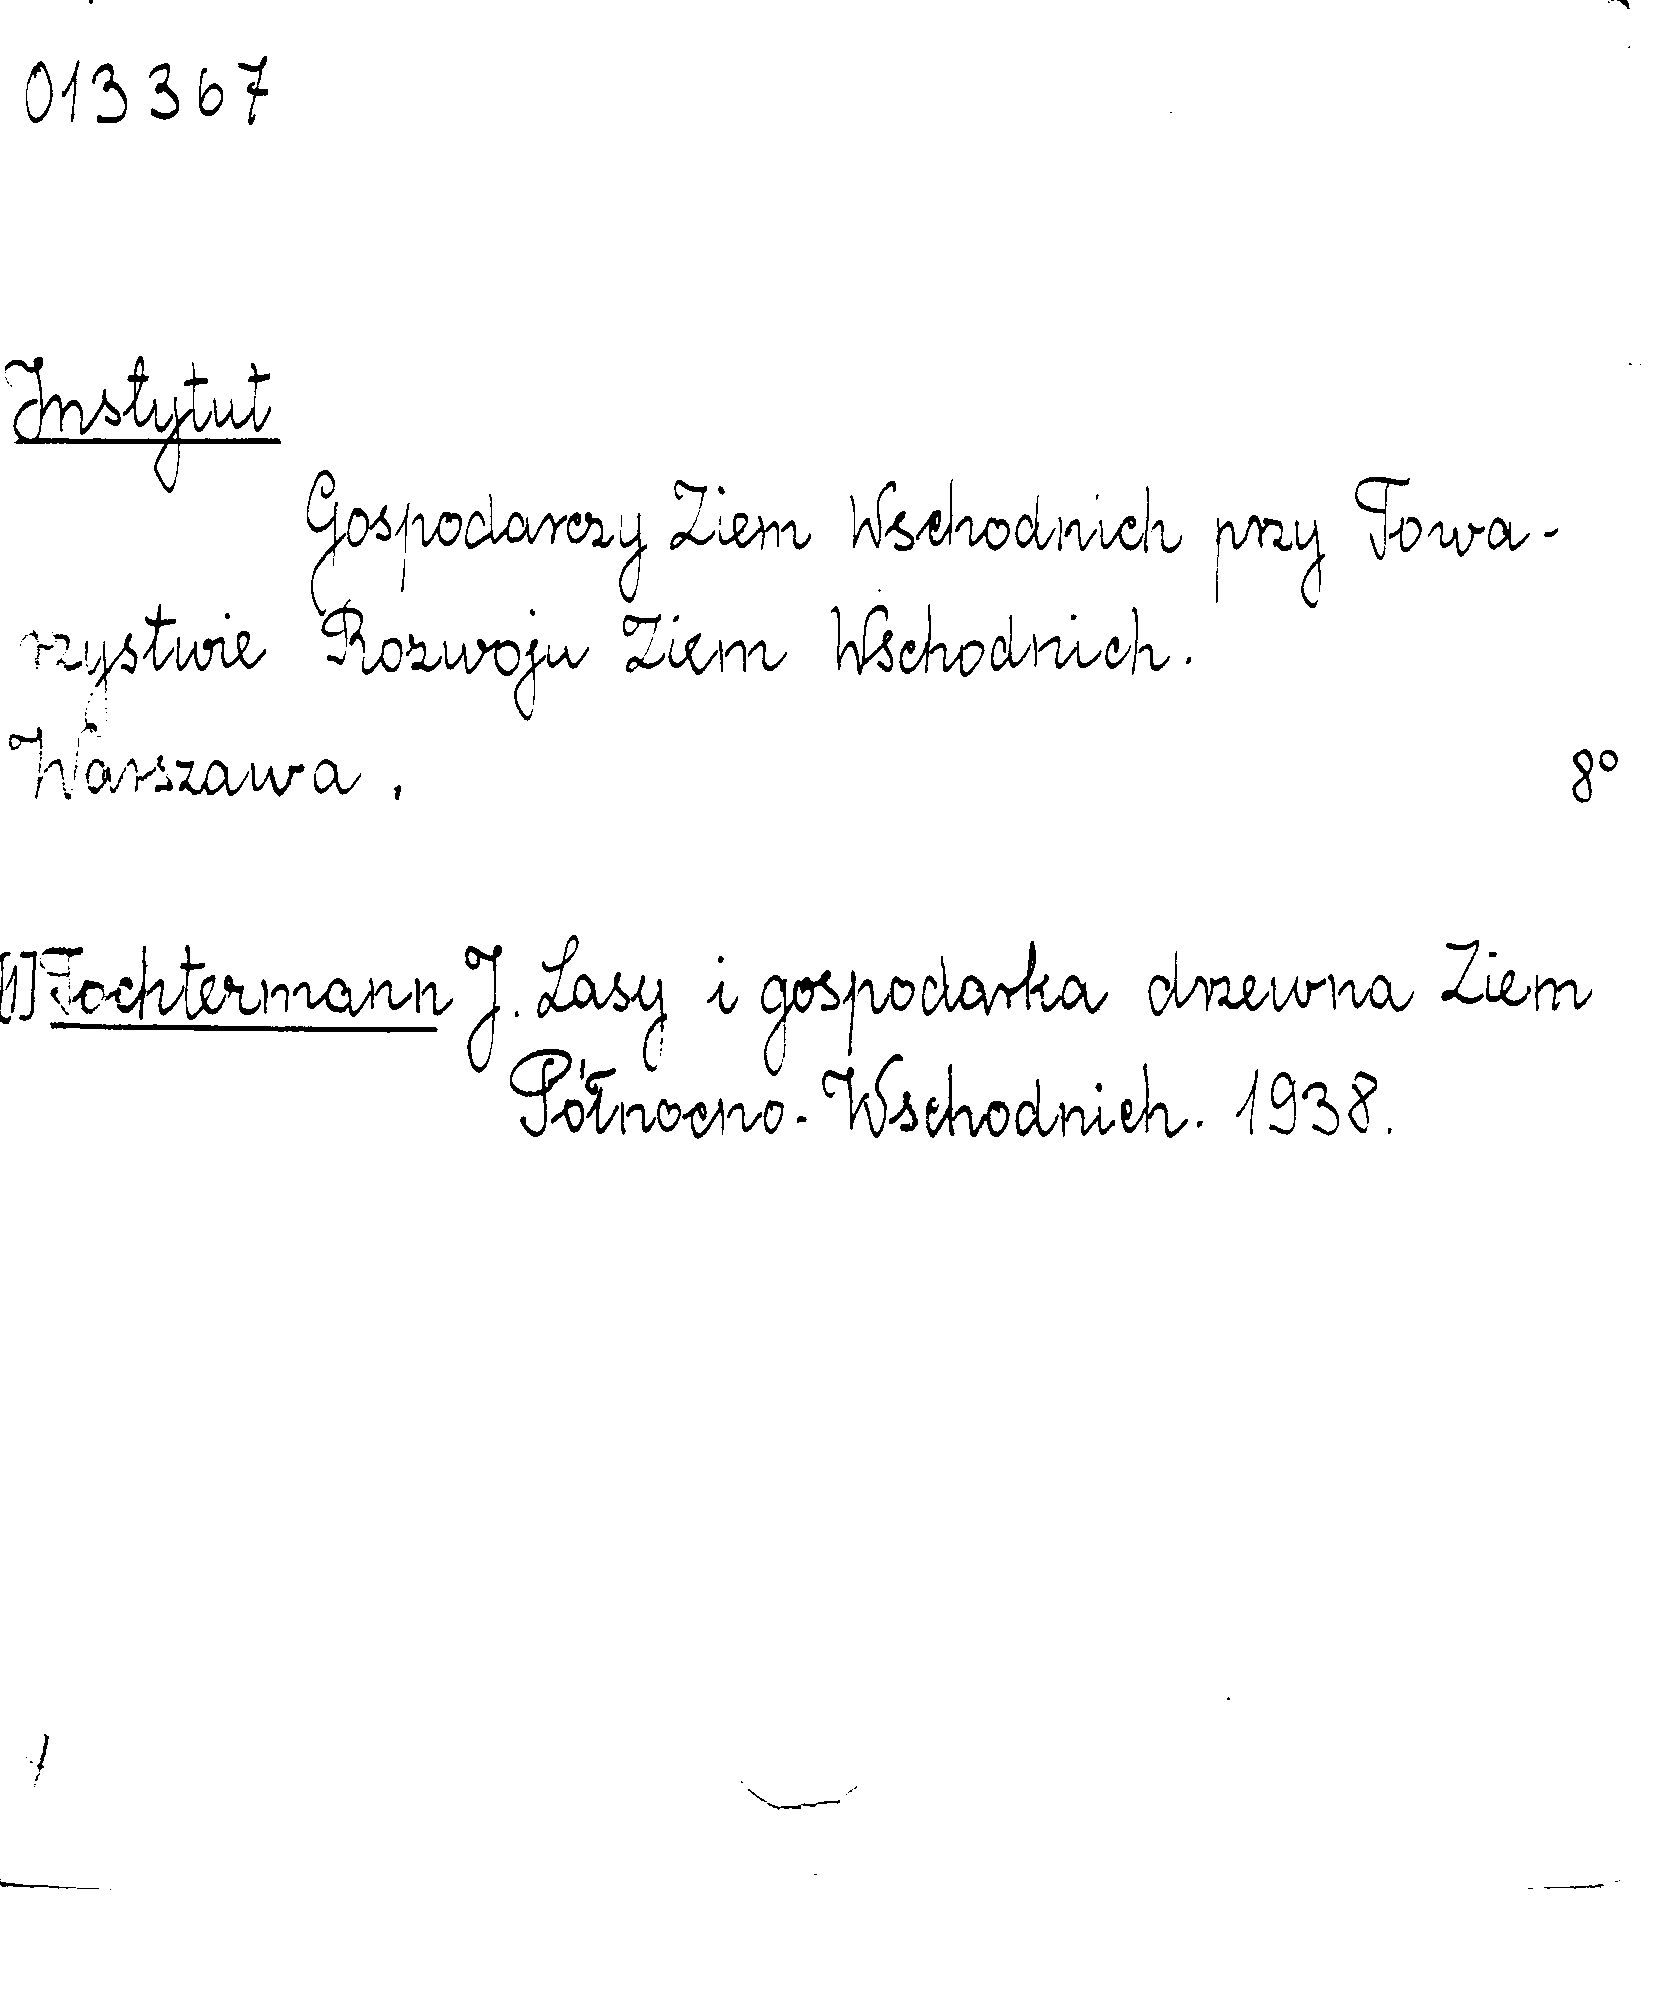 013367
Instytut
Gospodarczy Ziem Wschodnich przy Towa-
rzystwie Rozwoju Ziem Wschodnich.
Warszawa. 8°
[1] Tochtermann J. Lasy i gospodarka drzewna Ziem
Północno-Wschodnich. 1938.